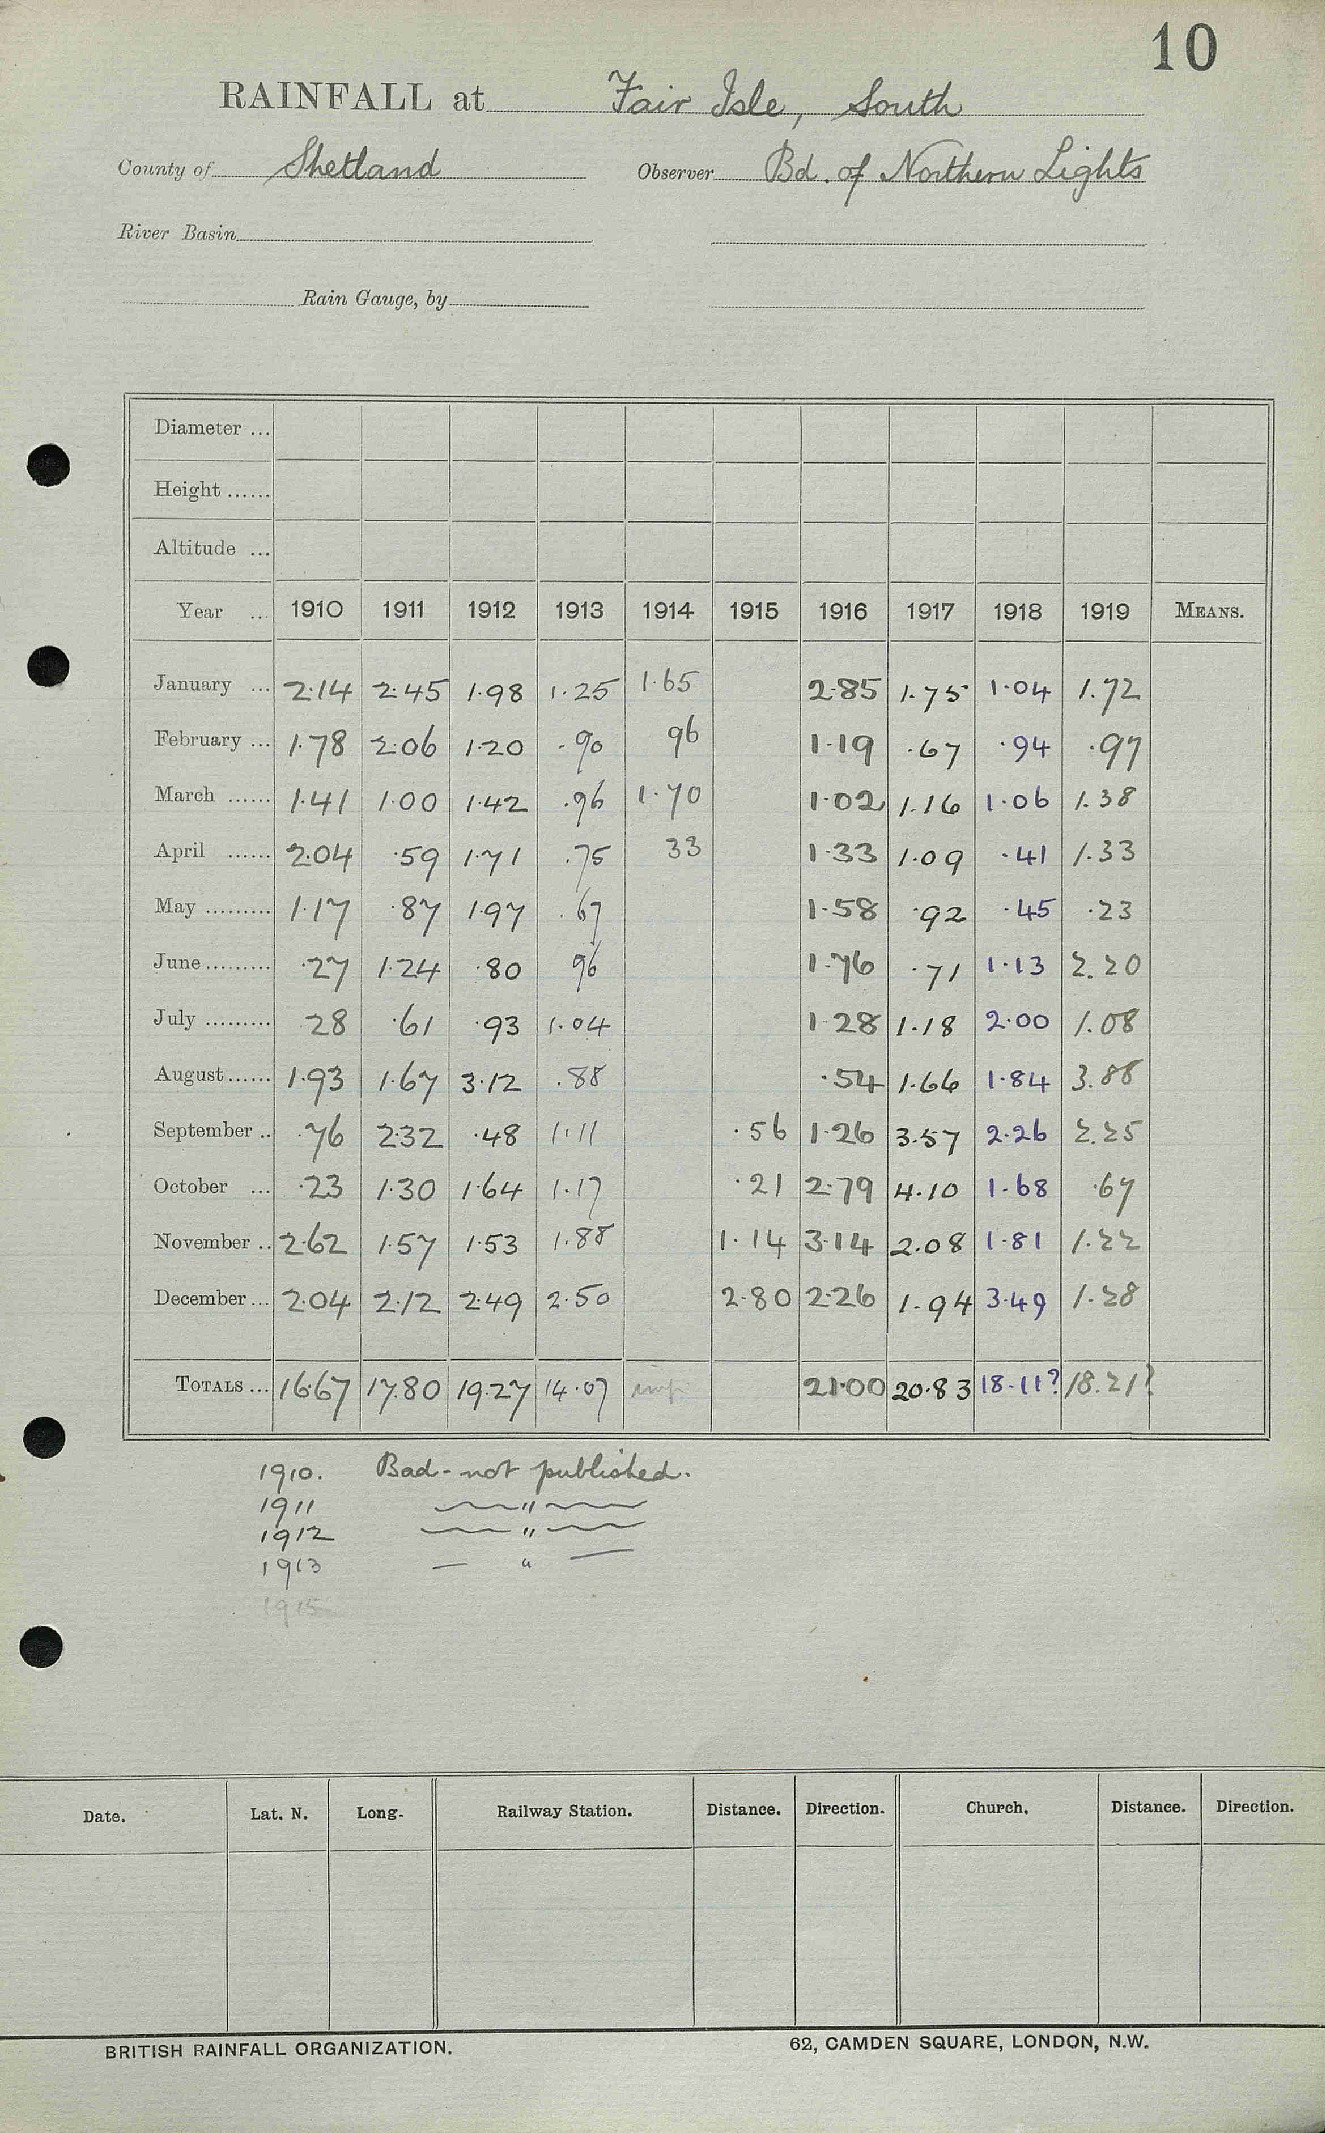 10
RAINFALL at Fair Isle, South
County of Shetland Observer Bd. of Northern Lights
River Basin
Rain Gauge, by
Diameter ...
Height ......
Altitude ...
Year ... 1910 1911 1912 1913 1914 1915 1916 1917 1918 1919 MEANS.
January ... 2.14 2.45 1.98 1.25 1.65 2.85 1.75 1.04 1.72
February ... 1.78 2.06 1.20 .90 96 1.19 .67 .94 .97
March ...... 1.41 1.00 1.42 .96 1.70 1.02 1.16 1.06 1.38
April ...... 2.04 .59 1.71 .75 33 1.33 1.09 .41 1.33
May ......... 1.17 .87 1.97 .67 1.58 .92 .45 .23
June ......... .27 1.24 .80 96 1.76 .71 1.13 2.20
July ......... 28 .61 .93 1.04 1.28 1.18 2.00 1.08
August ...... 1.93 1.67 3.12 .88 .54 1.66 1.84 3.88
September .. .76 2.32 .48 1.11 .56 1.26 3.57 2.26 2.25
October ... .23 1.30 1.64 1.17 .21 2.79 4.10 1.68 .67
November .. 2.62 1.57 1.53 1.88 1.14 3.14 2.08 1.81 1.22
December ... 2.04 2.12 2.49 2.50 2.80 2.26 1.94 3.49 1.28
TOTALS ... 16.67 17.80 19.27 14.07 imp. 21.00 20.83 18.11? 18.21?
1910. Bad - not published.
1911 "
1912 "
1913 "
1915
Date. Lat. N. Long. Railway Station. Distance. Direction. Church. Distance. Direction.
BRITISH RAINFALL ORGANIZATION. 62, CAMDEN SQUARE, LONDON, N.W.